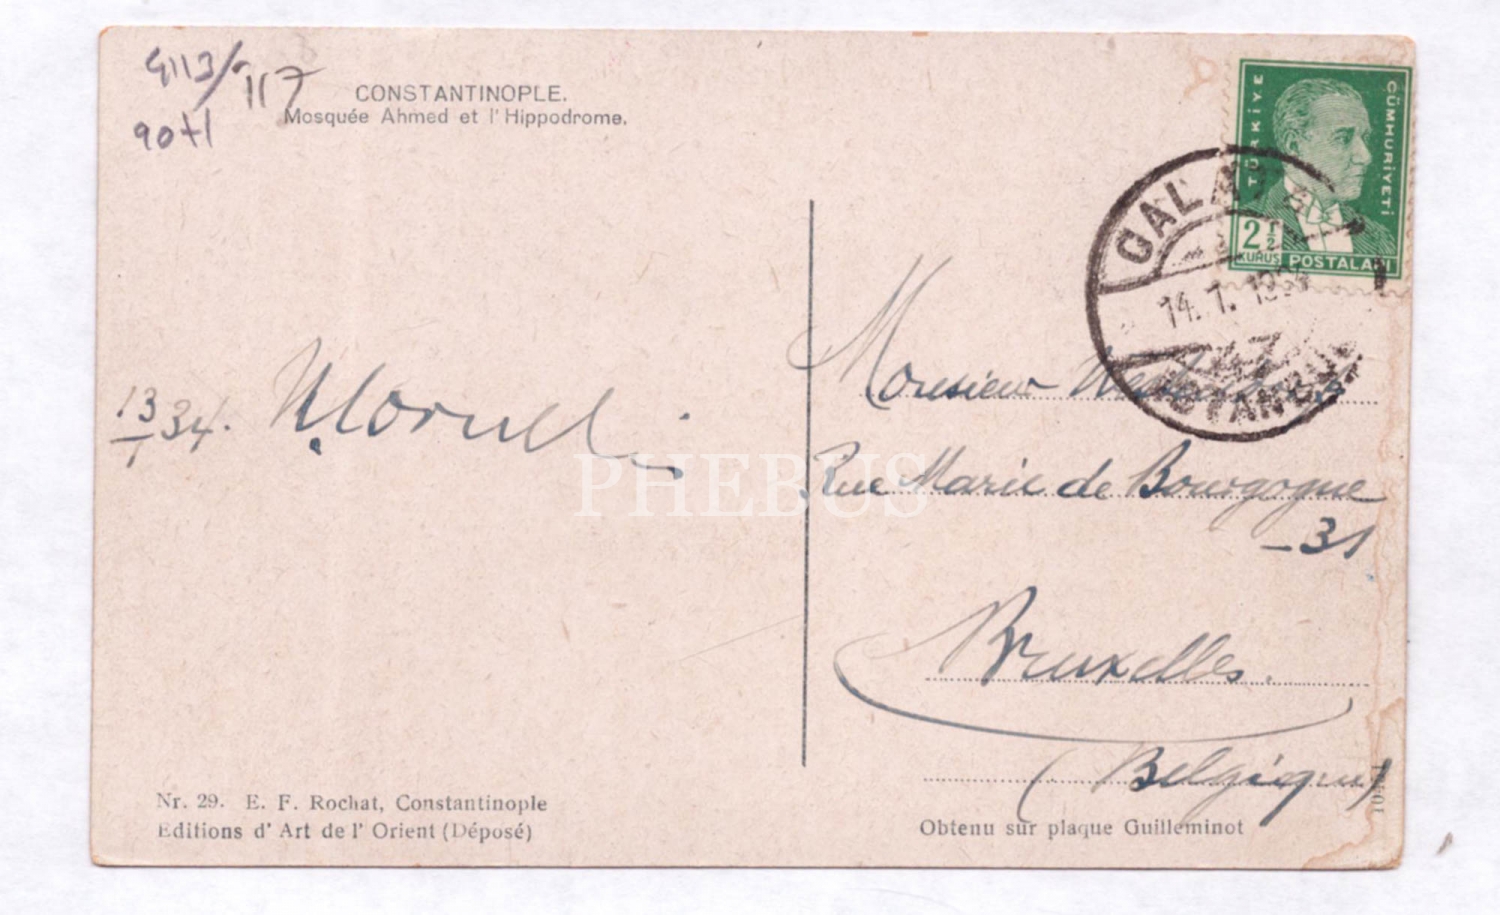 9113/117
90+1
CONSTANTINOPLE.
Mosquée Ahmed et l'Hippodrome.
TÜRKİYE
CÜMHURİYETİ
2 1/2
KURUS POSTALARI
GALATA
14.1.19
ISTANBUL
13/1 34.
Monsieur
Rue Marie de Bourgogne
-31
Bruxelles.
(Belgique)
PHEBUS
Nr. 29. E. F. Rochat, Constantinople
Editions d'Art de l'Orient (Déposé)
Obtenu sur plaque Guilleminot